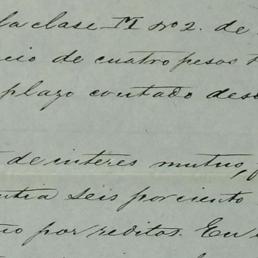 la clase M nº 2. de
cio de cuatro pesos
plazo contado desd
de interes mutuo,
ntia seis por ciento
o por reditos. En